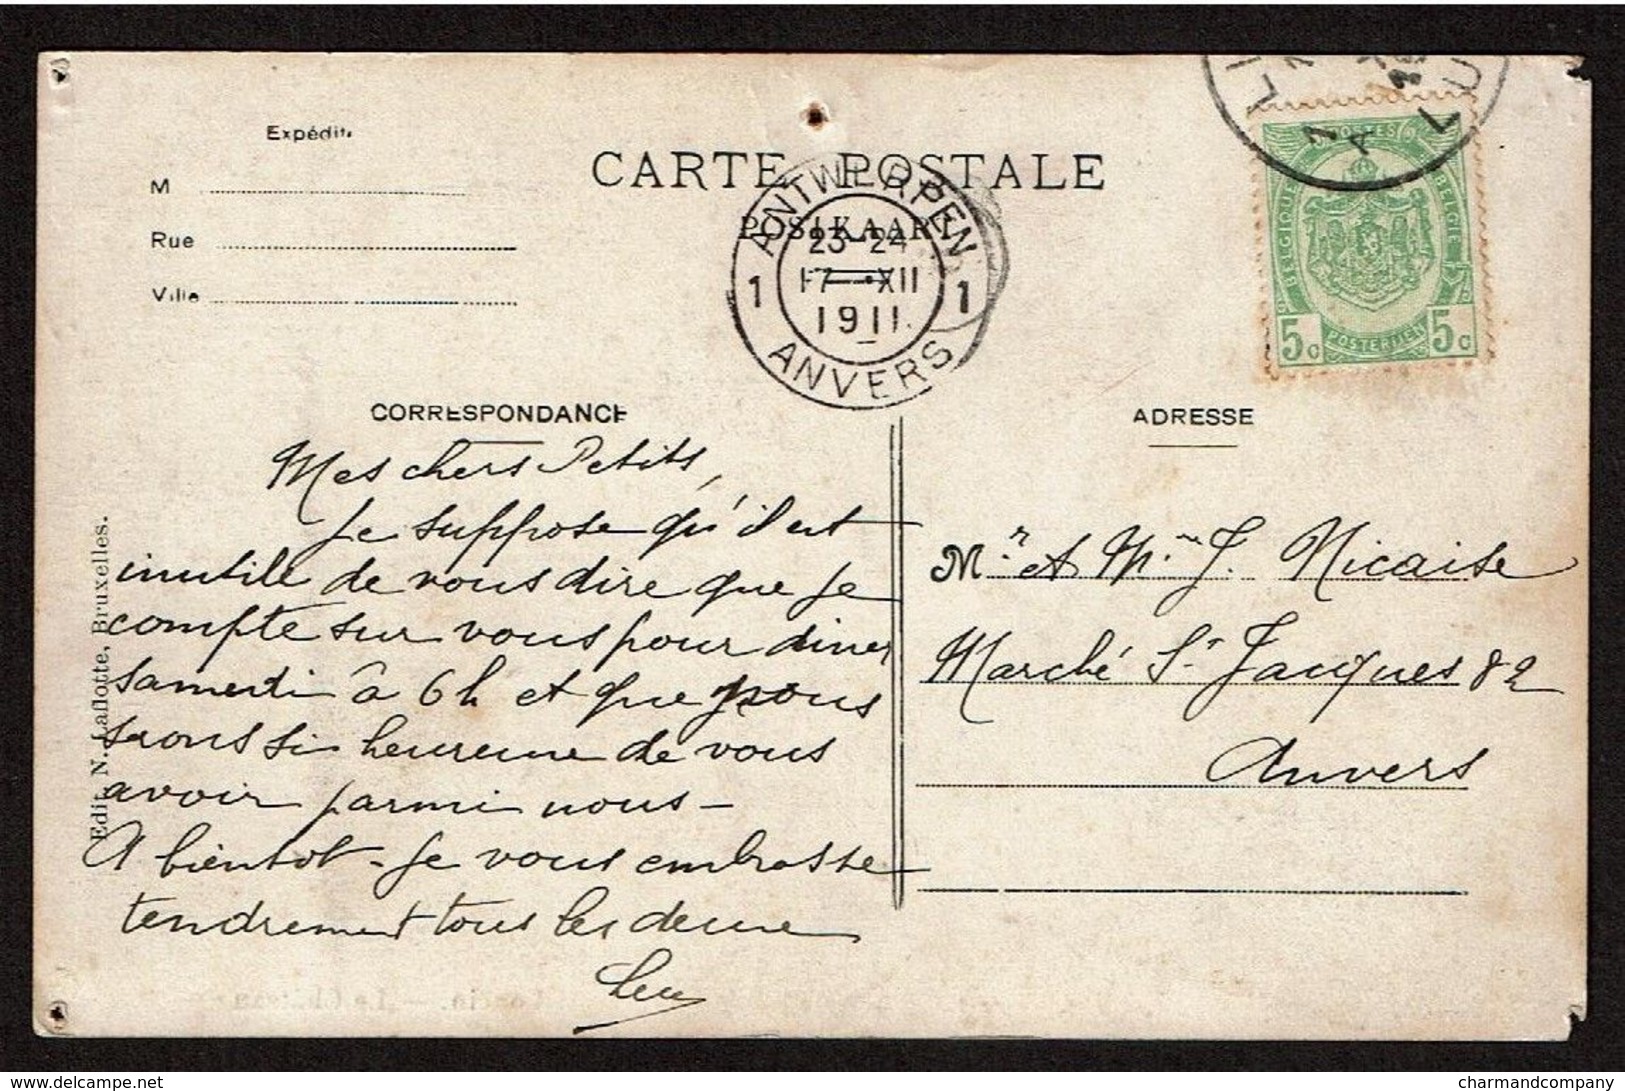 Expédit
M
Rue
Ville
CARTE POSTALE
POSTKAART
ANTWERPEN
23-24
17 XII
1911
1 1
ANVERS
BELGIQUE
BELGIË
POSTERIJEN
5c 5c
CORRESPONDANCE
Mes chers Petits,
Je suppose qu'il est
inutile de vous dire que je
compte sur vous pour diner
samedi à 6 h et que nous
serons si heureuse de vous
avoir parmi nous -
A bientot - Je vous embrasse
tendrement tous les deux
Edit. N. Laflotte, Bruxelles.
ADRESSE
Mr et Mme J. Nicaise
Marché St Jacques 82
Anvers
delcampe.net
charmandcompany